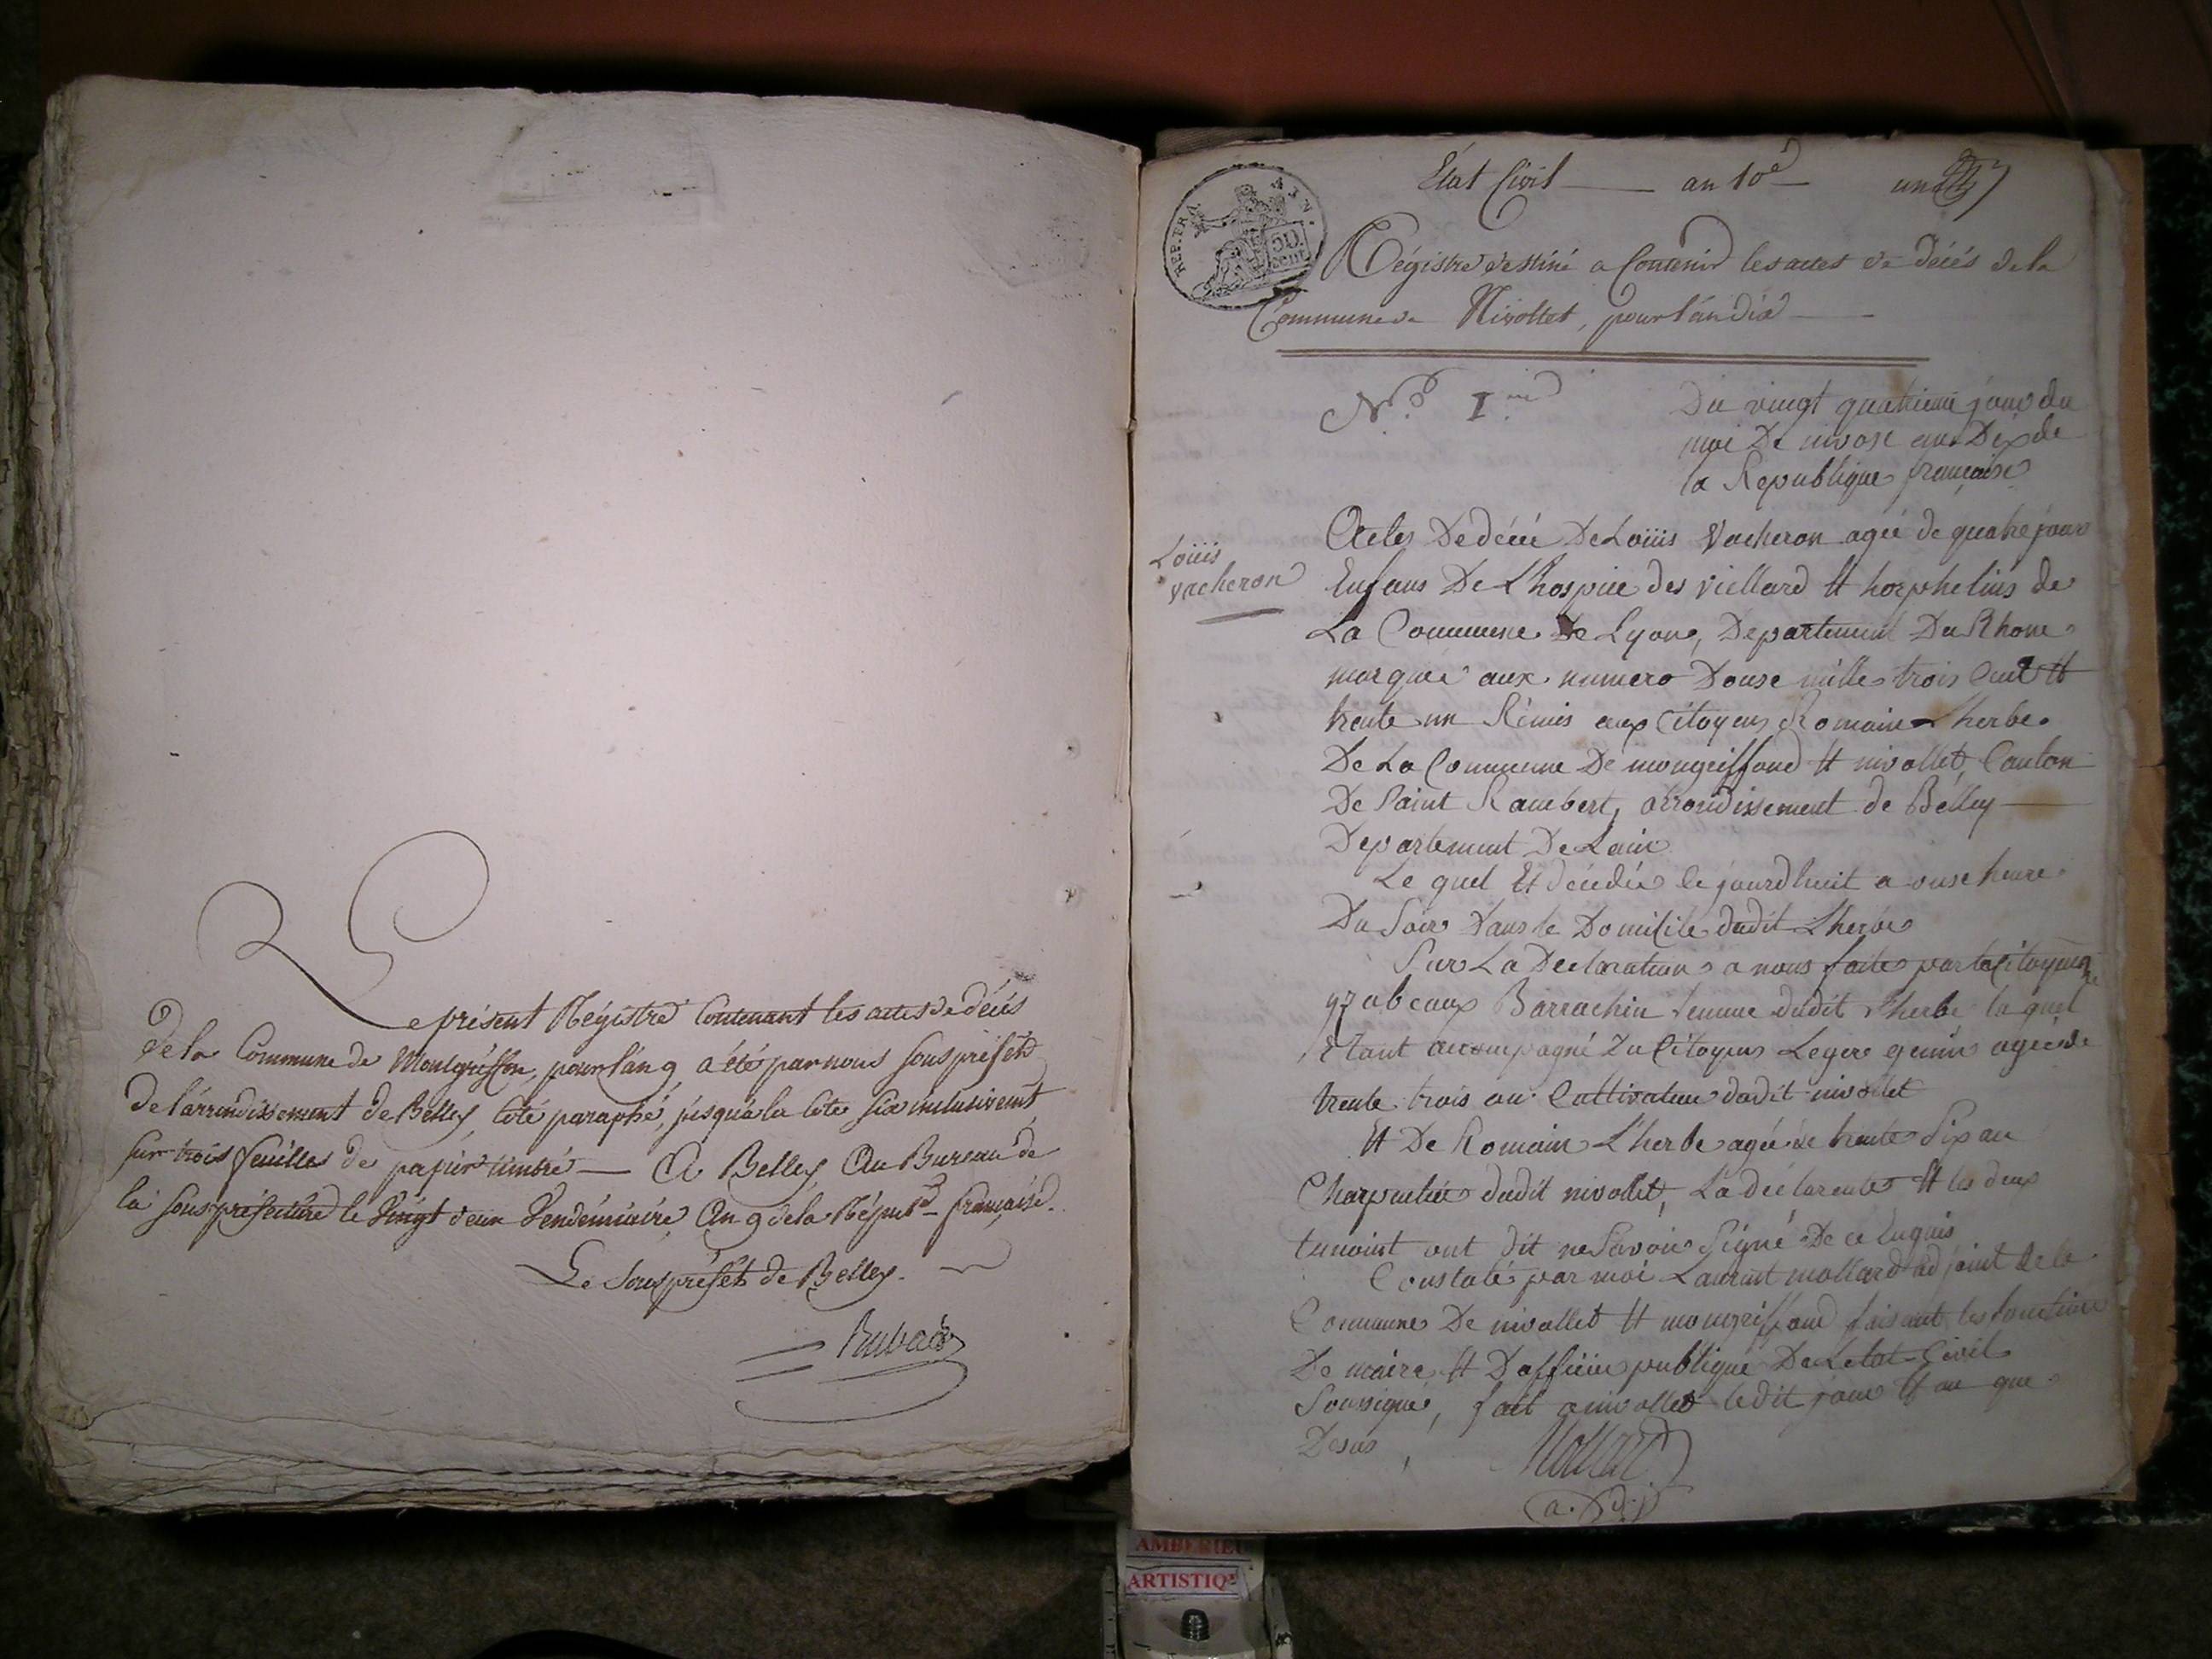 Le présent Régistre Contenant les actes de décés
de la Commune de Montgriffon, pour l'an 9 a été par nous sous préfet
de l'arrondissement de Belley, coté paraphé, jusqu'a la cote six inclusivement,
sur trois feuilles de papier timbré — A Belley Au Bureau de
la sous préfecture le Vingt deux Vendémiaire, An 9 de la Répub. française.
Le sous préfet de Belley.
REP. FRA.
50
cent
Etat Civil — an 10e — un
Régistre destiné a Contenir les actes de décés de la
Commune de Nivollet, pour l'an dix
N.o 1.er
Du vingt quatrieme jour du
moi De nivose an Dix de
la Republique française
Louis
vacheron
Actes De décéé De Louis Vacheron ageé de quatre jour
Enfans De L'hospice des viellard Et horphelins de
La Commune De Lyon, Departement Du Rhone
marqué aux numero Douse mille trois Cent Et
trente un Rémis aux Citoyens Romain Lherbe
De La Commune De mongriffond Et nivollet, Canton
De Saint Rambert, arrondissement de Bélley
Departement De Lain
Le quel Et décédé le jourdhuit a onse heure
Du Soir dans le Domicile dudit Lherbe
Sur La Declaration a nous faite par la Citoyenne
Barrachin femme dudit Lherbe la quel
Etant accompagné Du Citoyens Leger ageé de
trente trois an Cultivateur dudit nivollet
Et De Romain L'herbe ageé de trente Six an
Charpentier dudit nivollet, La déclarente Et les deux
temoint ont dit ne Savoir Signé De ce Enquis
Constaté par moi Laurent mollard adjoint de la
Commune De nivollet Et mongriffond faisant les fonctions
De maire Et D'officier publique De Letat Civil
Soussigné, fait a nivollet ledit jour Et an que
Desus,
Mollard
a.dj
AMBERIEU
ARTISTIQ